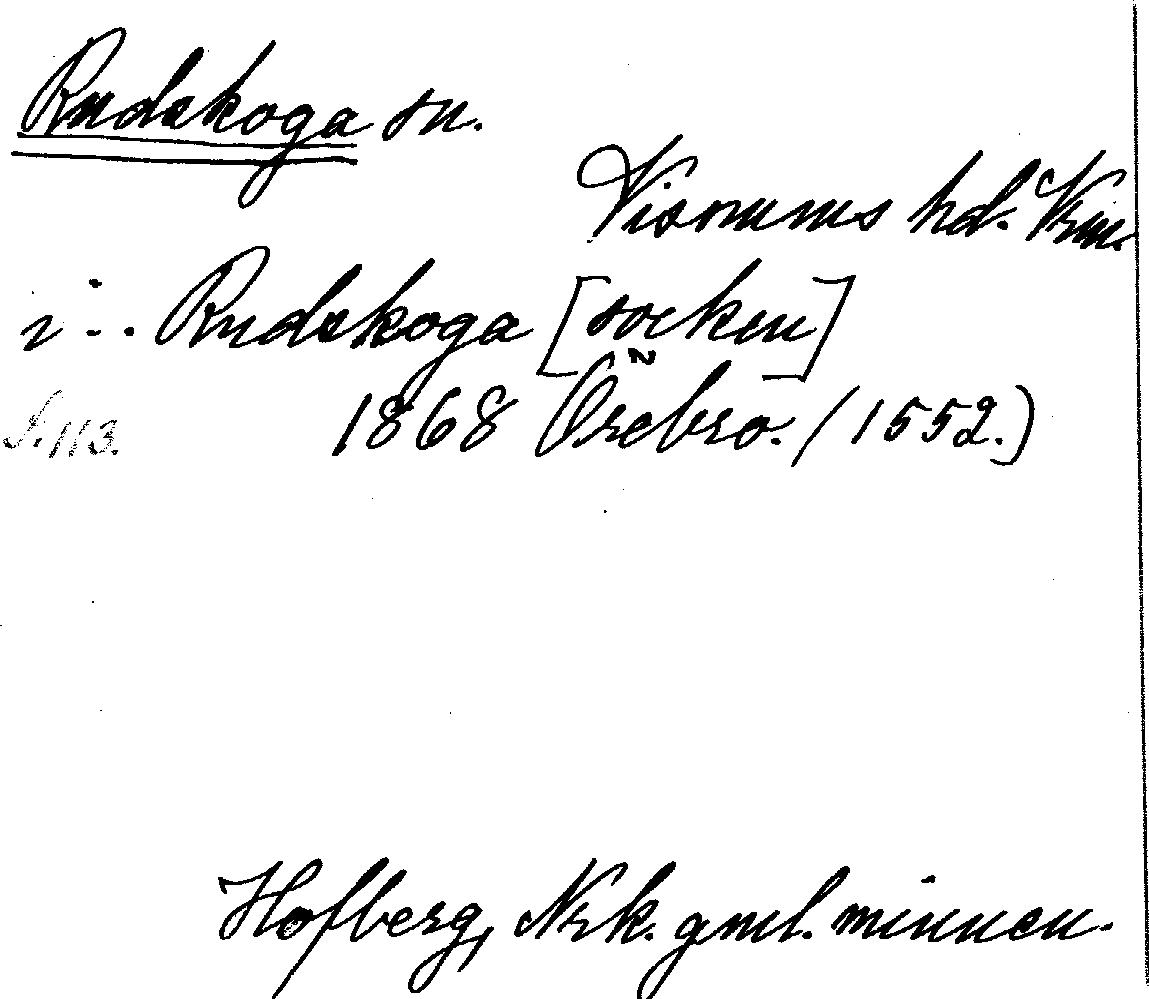 Rudskoga sn.
Visnums hd. Vrm.
i .. Rudskoga [socken]
S. 113. 1868 Örebro. (1552.)
Hofberg, Nrk. gml. minnen.